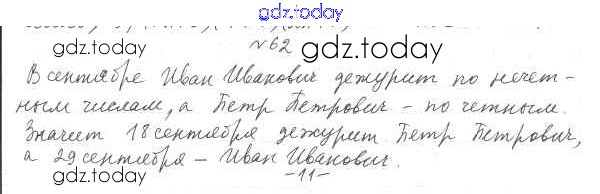 gdz.today
№62
gdz.today gdz.today
В сентябре Иван Иванович дежурит по нечет-
ным числам, а Петр Петрович - по четным.
Значит 18 сентября дежурит Петр Петрович,
а 29 сентября - Иван Иванович.
-11-
gdz.today gdz.today